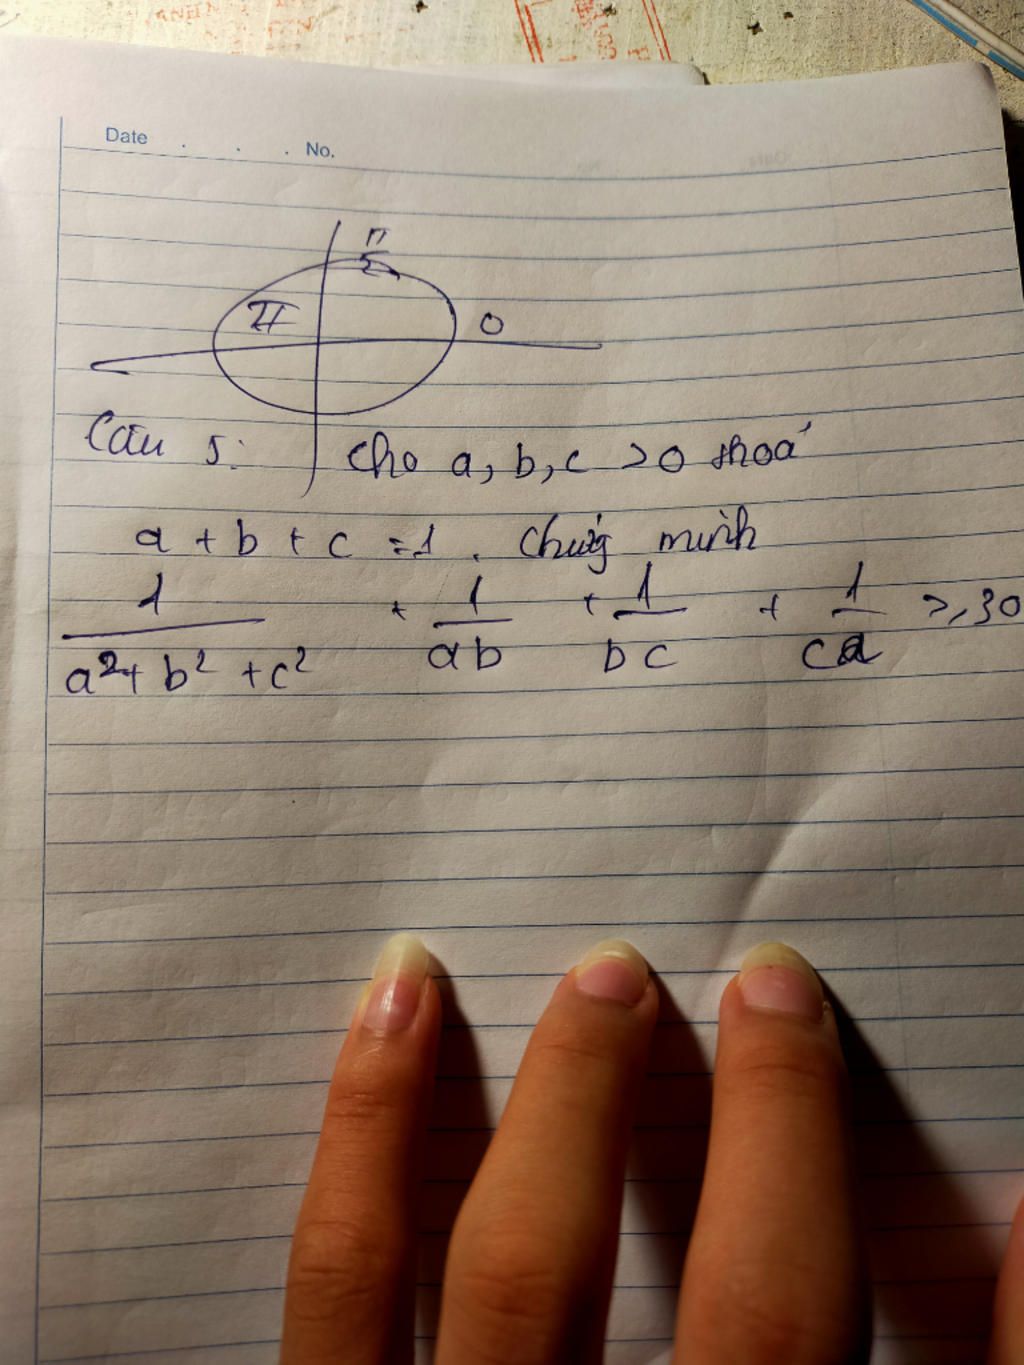 Date . . . No.
π/2
π 0
Câu 5: Cho a, b, c > 0 thoả
a + b + c = 1. Chứng minh
1/(a² + b² + c²) + 1/(ab) + 1/(bc) + 1/(ca) ≥ 30